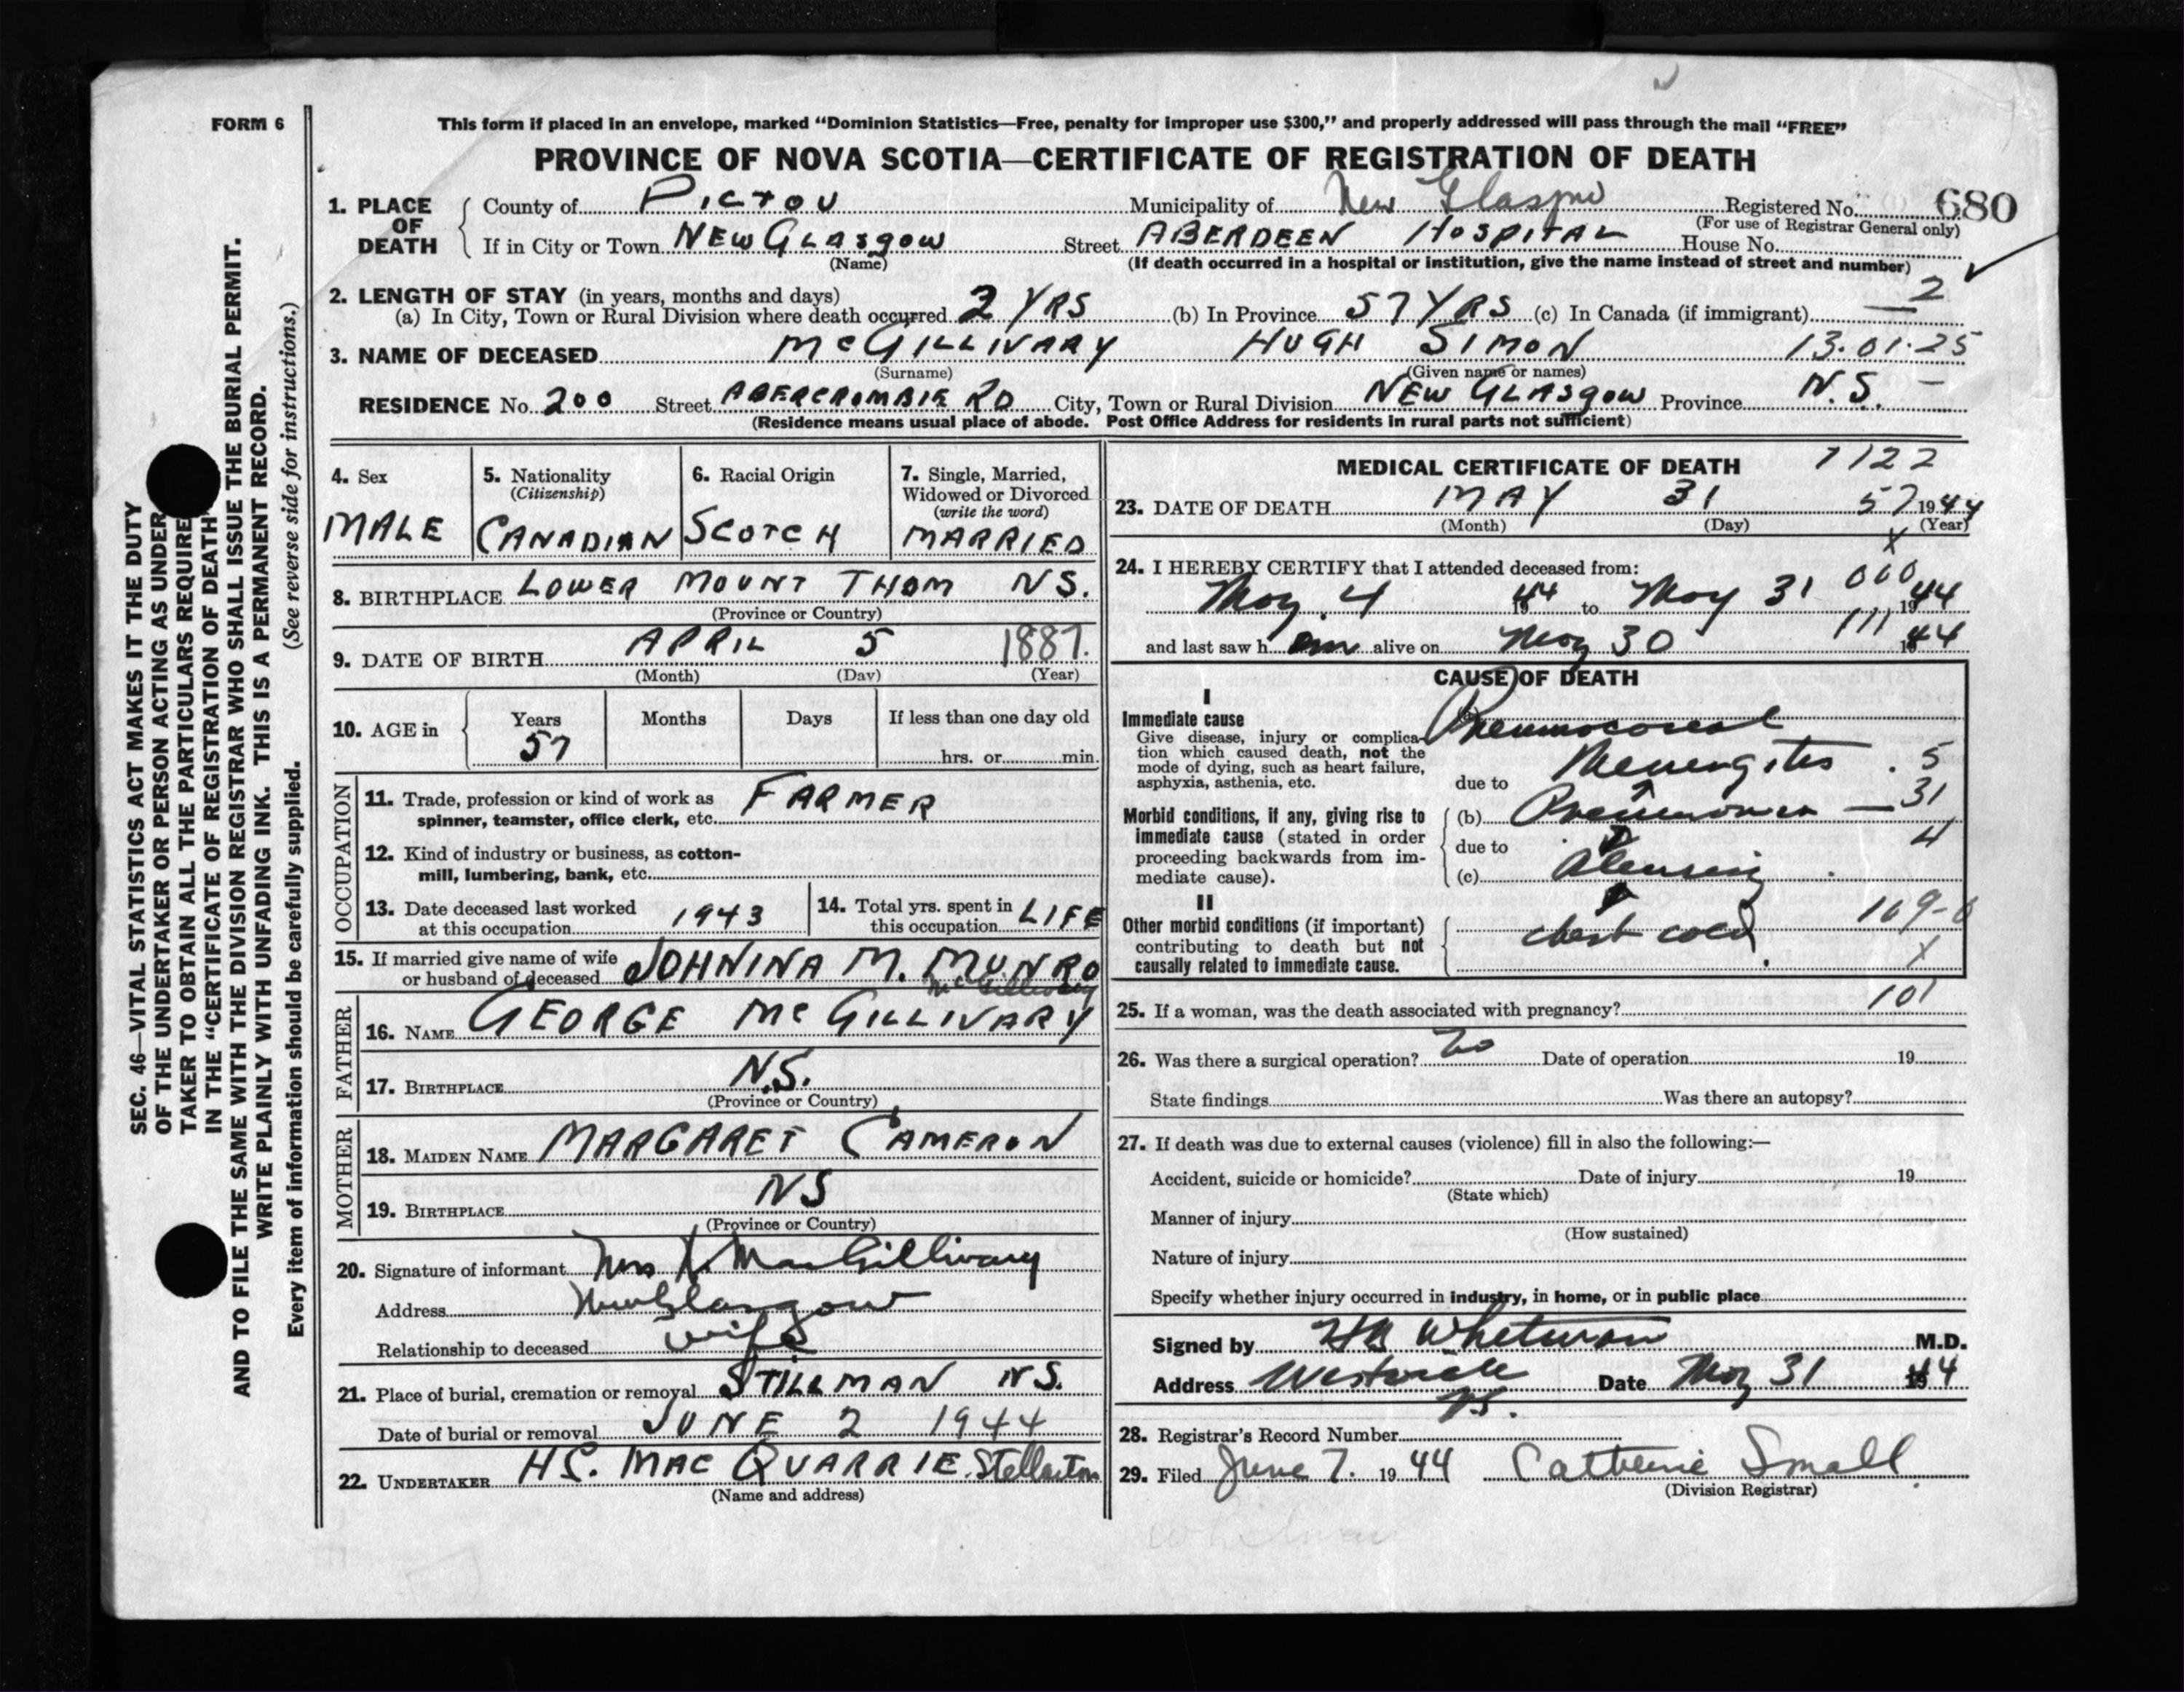 FORM 6
This form if placed in an envelope, marked “Dominion Statistics—Free, penalty for improper use $300,” and properly addressed will pass through the mail “FREE”
PROVINCE OF NOVA SCOTIA—CERTIFICATE OF REGISTRATION OF DEATH
1. PLACE OF DEATH
County of PICTOU Municipality of New Glasgow Registered No. 680
(For use of Registrar General only)
If in City or Town NEW GLASGOW Street ABERDEEN HOSPITAL House No.
(Name) (If death occurred in a hospital or institution, give the name instead of street and number)
2. LENGTH OF STAY (in years, months and days) 2
(a) In City, Town or Rural Division where death occurred 2 YRS (b) In Province 57 YRS (c) In Canada (if immigrant)
3. NAME OF DECEASED McGILLIVARY HUGH SIMON 13.01.25
(Surname) (Given name or names)
RESIDENCE No. 200 Street ABERCROMBIE RD City, Town or Rural Division NEW GLASGOW Province N.S.
(Residence means usual place of abode. Post Office Address for residents in rural parts not sufficient)
4. Sex
MALE
5. Nationality
(Citizenship)
CANADIAN
6. Racial Origin
SCOTCH
7. Single, Married,
Widowed or Divorced
(write the word)
MARRIED
8. BIRTHPLACE LOWER MOUNT THOM NS.
(Province or Country)
9. DATE OF BIRTH APRIL 5 1887.
(Month) (Day) (Year)
10. AGE in
Years Months Days If less than one day old
57 hrs. or min.
OCCUPATION
11. Trade, profession or kind of work as
spinner, teamster, office clerk, etc. FARMER
12. Kind of industry or business, as cotton-
mill, lumbering, bank, etc.
13. Date deceased last worked
at this occupation 1943
14. Total yrs. spent in
this occupation LIFE
15. If married give name of wife
or husband of deceased JOHNINA M. MUNRO
McGillivary
FATHER
16. NAME GEORGE McGILLIVARY
17. BIRTHPLACE N.S.
(Province or Country)
MOTHER
18. MAIDEN NAME MARGARET CAMERON
19. BIRTHPLACE NS
(Province or Country)
20. Signature of informant Mrs H. MacGillivary
Address New Glasgow
Relationship to deceased wife
21. Place of burial, cremation or removal STILLMAN N.S.
Date of burial or removal JUNE 2 1944
22. UNDERTAKER HS. MAC QUARRIE. Stellarton
(Name and address)
MEDICAL CERTIFICATE OF DEATH 1122
23. DATE OF DEATH MAY 31 57 1944
(Month) (Day) (Year)
X
24. I HEREBY CERTIFY that I attended deceased from: 060
May. 4 1944 to May 31 1944
and last saw h im alive on May 30 111 1944
CAUSE OF DEATH
I
Immediate cause
Give disease, injury or complica-
tion which caused death, not the
mode of dying, such as heart failure,
asphyxia, asthenia, etc.
(a) Pneumococcal
Meningitis 5
due to
Morbid conditions, if any, giving rise to
immediate cause (stated in order
proceeding backwards from im-
mediate cause).
(b) Pneumonia — 31
due to 4
(c) Pleurisy
II
Other morbid conditions (if important)
contributing to death but not
causally related to immediate cause.
chest cold
X
25. If a woman, was the death associated with pregnancy? 101
26. Was there a surgical operation? No Date of operation 19
State findings Was there an autopsy?
27. If death was due to external causes (violence) fill in also the following:—
Accident, suicide or homicide? Date of injury 19
(State which)
Manner of injury
(How sustained)
Nature of injury
Specify whether injury occurred in industry, in home, or in public place
Signed by Whitman M.D.
Address Westville Date May 31 1944
N.S.
28. Registrar's Record Number
29. Filed June 7. 1944 Catherine Small
(Division Registrar)
Whitman
SEC. 46—VITAL STATISTICS ACT MAKES IT THE DUTY
OF THE UNDERTAKER OR PERSON ACTING AS UNDER
TAKER TO OBTAIN ALL THE PARTICULARS REQUIRE
IN THE “CERTIFICATE OF REGISTRATION OF DEATH
AND TO FILE THE SAME WITH THE DIVISION REGISTRAR WHO SHALL ISSUE THE BURIAL PERMIT.
WRITE PLAINLY WITH UNFADING INK. THIS IS A PERMANENT RECORD.
Every item of information should be carefully supplied. (See reverse side for instructions.)